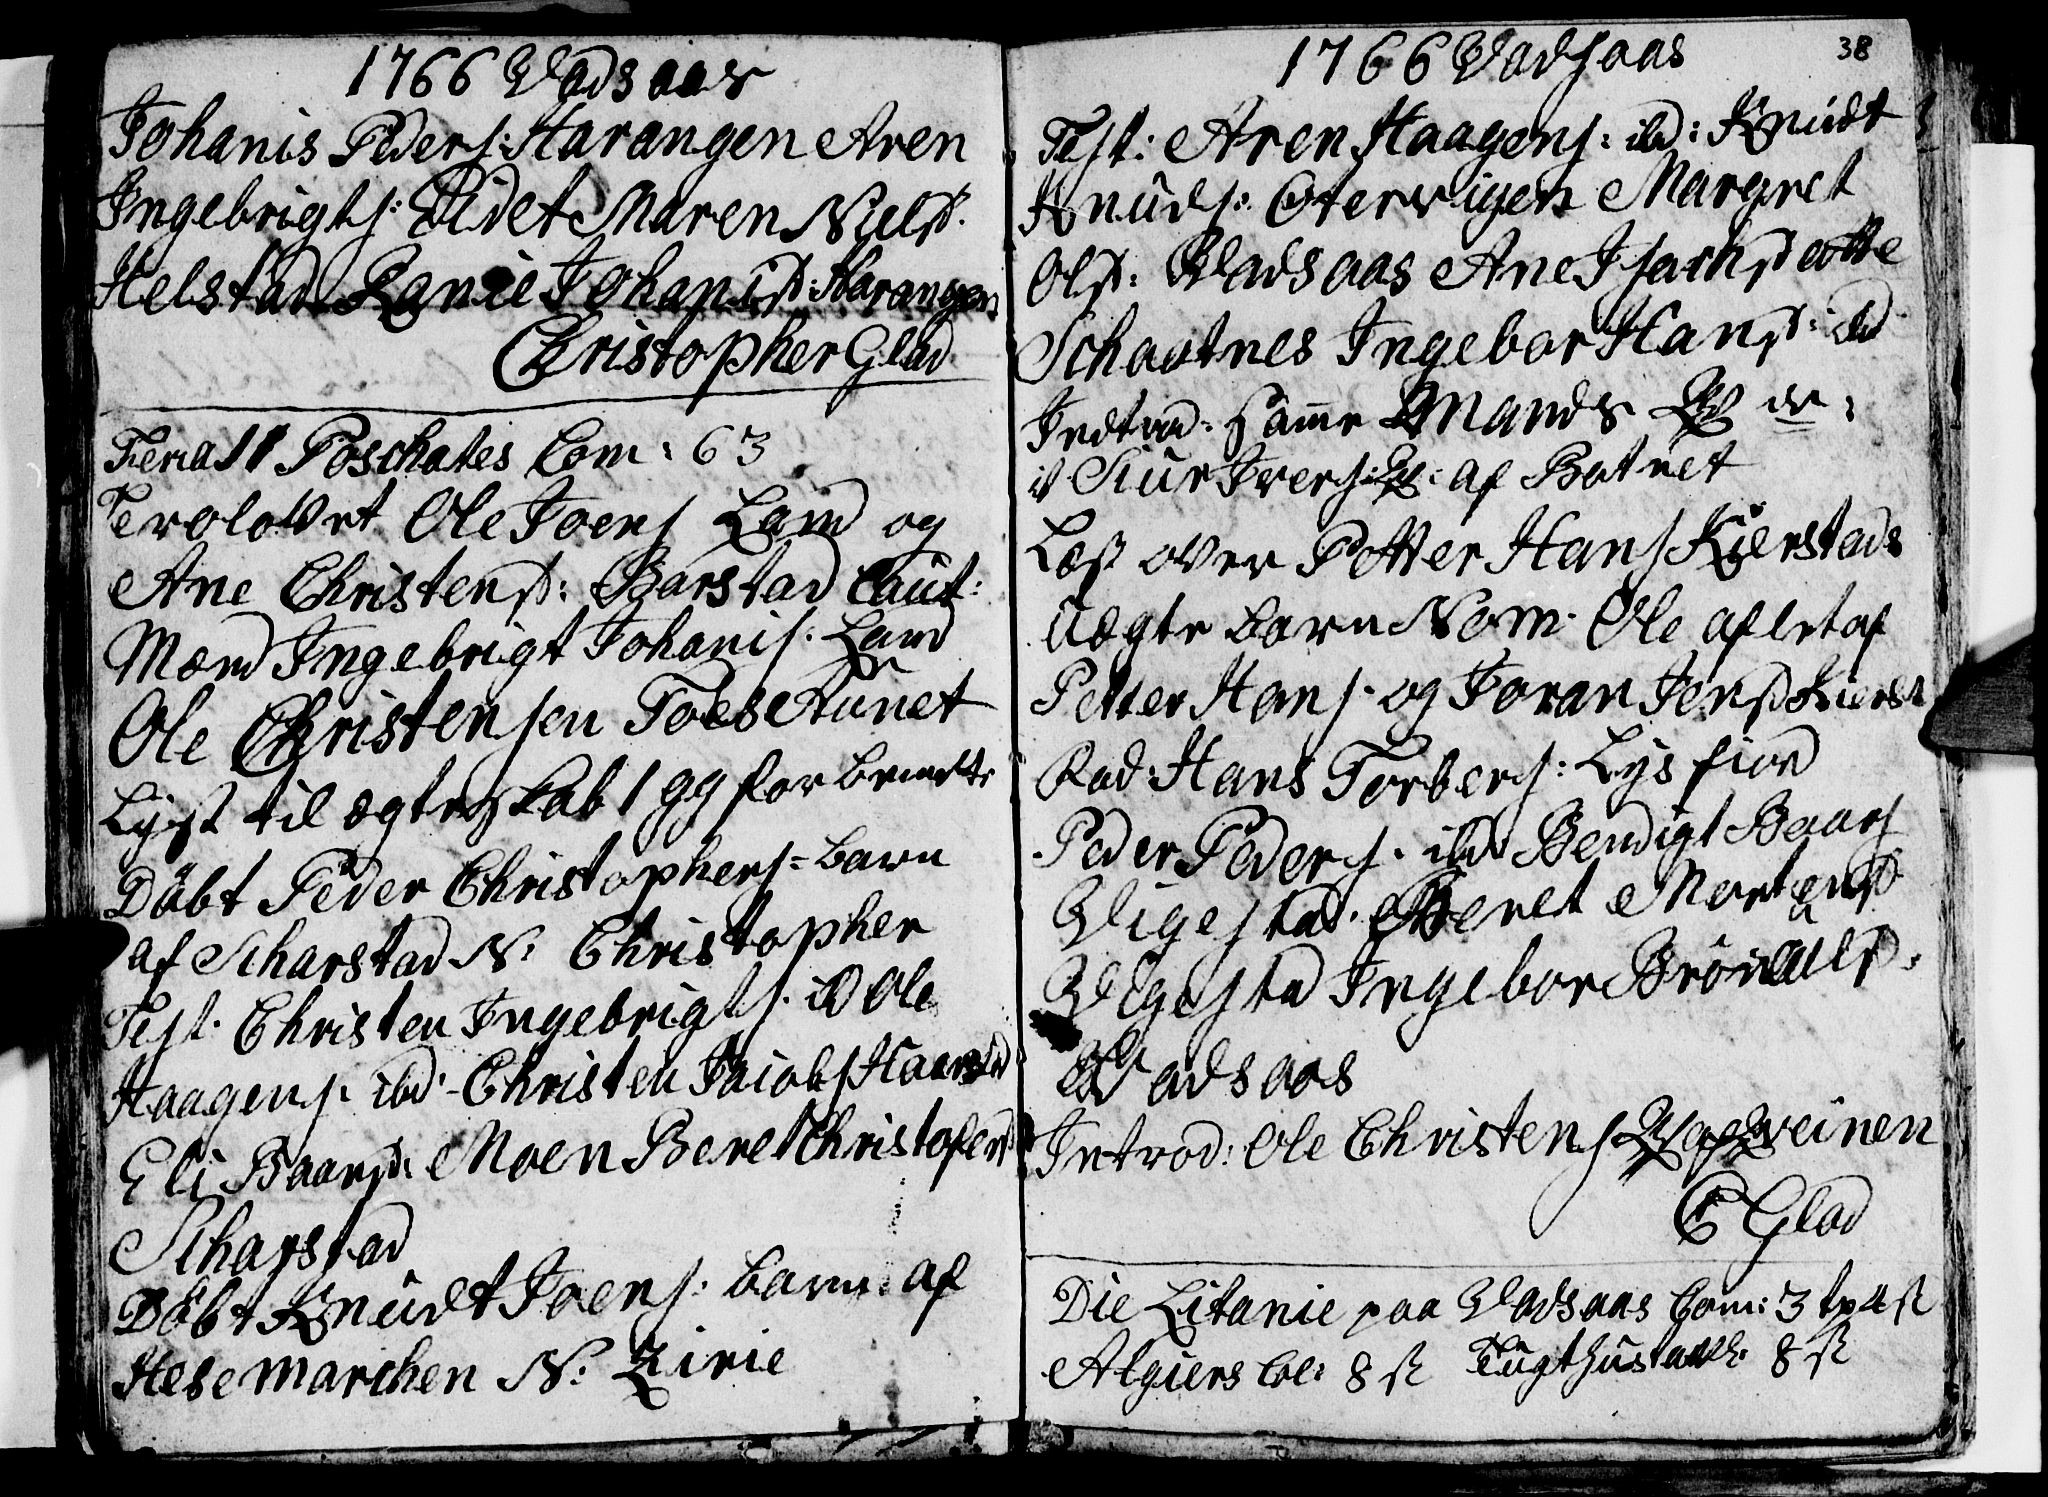 1766 Vadsaas
Johanis Peders: Harangen Aren
Ingebrigts: Eidet Maren Nielsd.
Helstad Ranie Johanisd: Harangen
Christopher Glad
Feria II Paschates Com: 63
Trolovet Ole Joens Land og
Ane Christensd: Barstad Caut:
Mænd Ingebrigt Johanis: Land
Ole Christensen Foesaunet
Lyst til ægteskab 1 gg for bemelte
Döbt Peder Christophers: barn
af Scharstad N: Christopher
Test. Christen Ingebrigts. ibd Ole
Haagens: ibd. Christen Jacobs Haarstad
Eli Baarsd: Moen Beret Christofersd
Scharstad
Döbt Knudt Joens: barn af
Hesemarchen N: Zirie
1766 Vadsaas
38
Test: Aren Haagens: ibd: Knudt
Knuds: Oterwigen Margret
Olsd: Vadsaas Ane Isachsdotte
Schaatnes Ingebor Hansd: ibd
Introd: samme Mands
it Siur Ivers: af Botnet
Læst over Petter Hans Kierstads
Uægte barn Nom. Ole aflet af
Petter Hans. og Joran Jensd Kierst
Fad: Hans Torbers: Lysfiord
Peder Peders. ibd Bendigt Baars
Vigestad. Beret Mortensd
Vigesta Ingebor Brönilsd.
Vadsaas
Introd: Ole Christens af Veinen
C Glad
Die Litanie paa Vadsaas Com: 3 tp 4 st
Algiers Col: 8 st Tugthustavl. 8 st